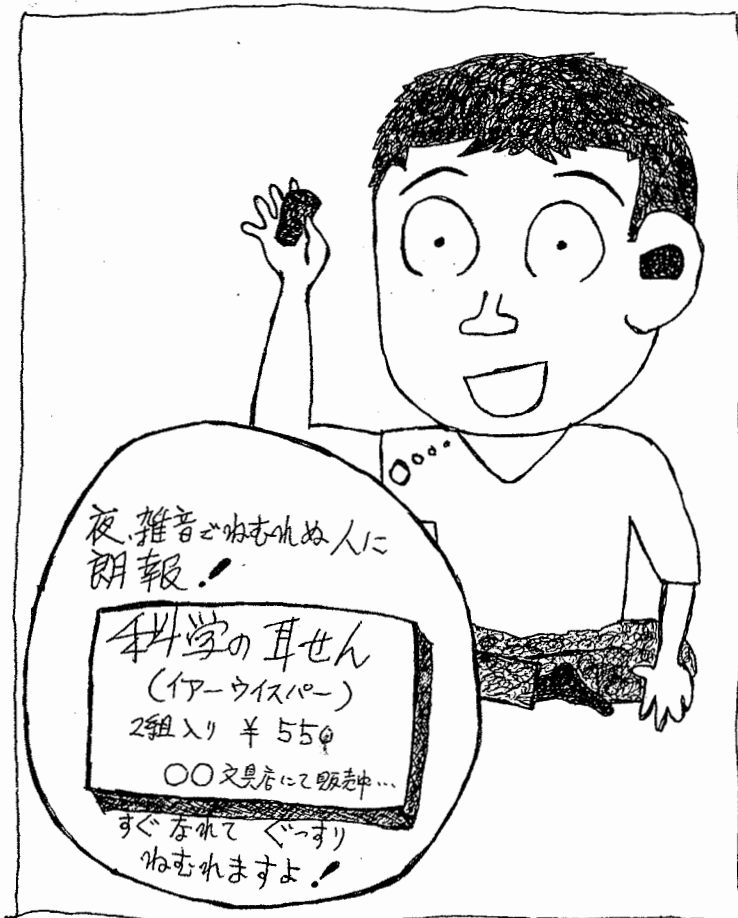 夜、雑音でねむれぬ人に
朗報!
科学の耳せん
(イアーウイスパー)
2組入り ¥550
○○文具店にて販売中…
すぐなれて ぐっすり
ねむれますよ!